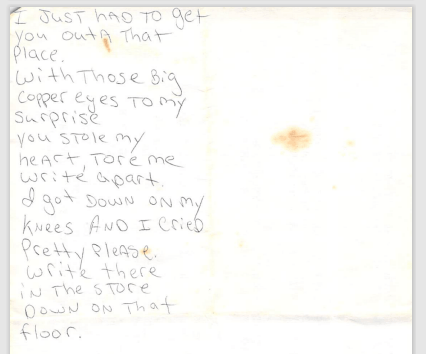 I JUST HAD TO get
you outA That
Place.
With Those Big
Copper eyes TO my
Surprise
you STOLE my
heArt, Tore me
write apart.
I got DOWN ON my
KNEES AND I CrieD
Pretty PleASe.
Write there
iN The STORE
DOWN ON That
floor.